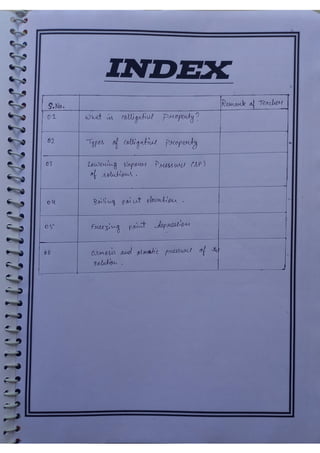 INDEX
S.No. Remark of Teachers
01 What is colligative Property?
02 Types of colligative Property
03 Lowering Vapour Pressure (VP)
of solutions.
04 Boiling point elevation.
05 Freezing point depression
06 Osmosis and osmotic pressure of
solution.